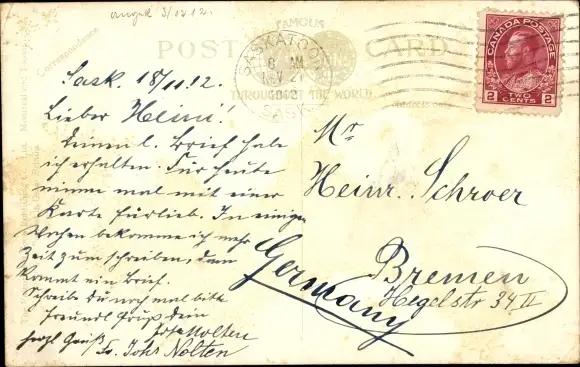 angek 3/12 12.
FAMOUS
POST CARD
THROUGHOUT THE WORLD
Correspondence
SASKATOON
8 AM
NOV 21
1912
SASK.
CANADA POSTAGE
2 TWO CENTS 2
Sask. 18/11. 12.
Lieber Heini!
Deinen l. Brief habe
ich erhalten. Für heute
nimm mal mit einer
Karte fürlieb. In einigen
Wochen bekomme ich mehr
Zeit zum schreiben, dann
kommt ein Brief.
Schreibe Du noch mal bitte
Freundl Gruß Dein
Nolten
herzl Gruß
Fr. Johs Nolten
Mr
Heinr. Schroer
Bremen
Hegelstr 34 II
Germany